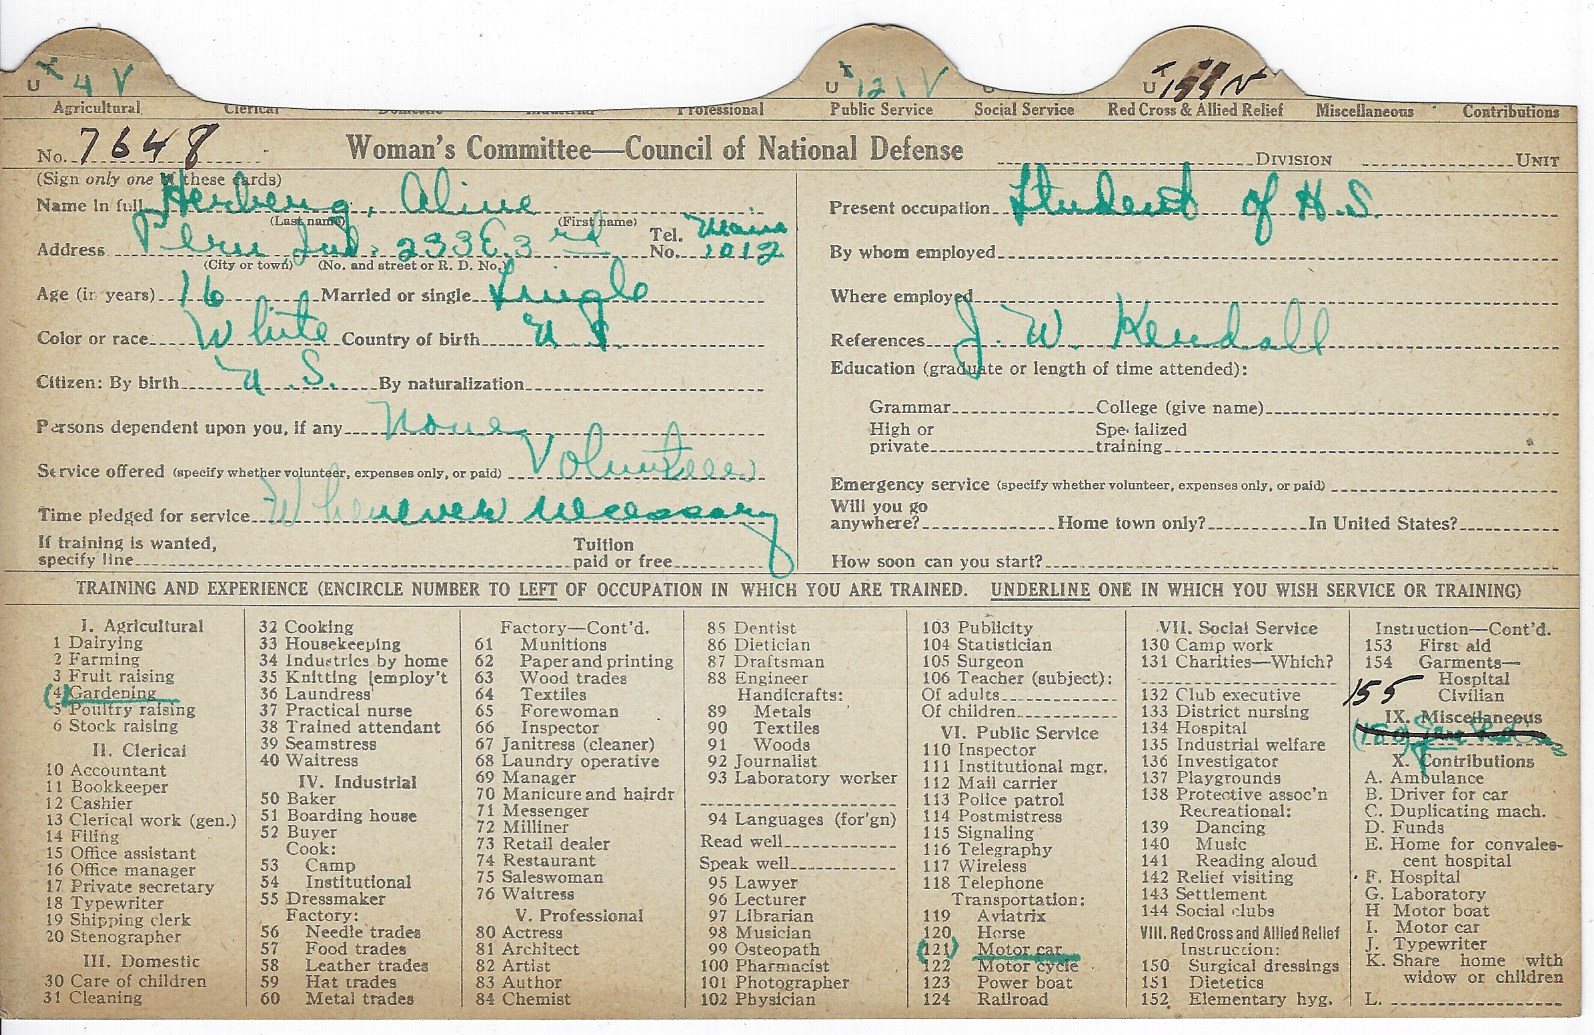 U T 4 V U T 121 V U T
Agricultural Clerical Domestic Industrial Professional Public Service Social Service Red Cross & Allied Relief Miscellaneous Contributions
No. 7648 Woman's Committee—Council of National Defense DIVISION UNIT
(Sign only one of these cards)
Name in full Aline
(Last name) (First name)
Address Peru Ind. 233 E. 3rd Tel. No. Main 1012
(City or town) (No. and street or R. D. No.)
Age (in years) 16 Married or single Single
Color or race White Country of birth U.S.
Citizen: By birth U.S. By naturalization
Persons dependent upon you, if any None
Service offered (specify whether volunteer, expenses only, or paid) Volunteer
Time pledged for service Whenever necessary
If training is wanted, specify line Tuition paid or free
Present occupation Student of H.S.
By whom employed
Where employed
References J. W. Kendall
Education (graduate or length of time attended):
Grammar College (give name)
High or private Specialized training
Emergency service (specify whether volunteer, expenses only, or paid)
Will you go anywhere? Home town only? In United States?
How soon can you start?
TRAINING AND EXPERIENCE (ENCIRCLE NUMBER TO LEFT OF OCCUPATION IN WHICH YOU ARE TRAINED. UNDERLINE ONE IN WHICH YOU WISH SERVICE OR TRAINING)
I. Agricultural
1 Dairying
2 Farming
3 Fruit raising
(4) Gardening
5 Poultry raising
6 Stock raising
II. Clerical
10 Accountant
11 Bookkeeper
12 Cashier
13 Clerical work (gen.)
14 Filing
15 Office assistant
16 Office manager
17 Private secretary
18 Typewriter
19 Shipping clerk
20 Stenographer
III. Domestic
30 Care of children
31 Cleaning
32 Cooking
33 Housekeeping
34 Industries by home
35 Knitting [employ't
36 Laundress
37 Practical nurse
38 Trained attendant
39 Seamstress
40 Waitress
IV. Industrial
50 Baker
51 Boarding house
52 Buyer
Cook:
53 Camp
54 Institutional
55 Dressmaker
Factory:
56 Needle trades
57 Food trades
58 Leather trades
59 Hat trades
60 Metal trades
Factory—Cont'd.
61 Munitions
62 Paper and printing
63 Wood trades
64 Textiles
65 Forewoman
66 Inspector
67 Janitress (cleaner)
68 Laundry operative
69 Manager
70 Manicure and hairdr
71 Messenger
72 Milliner
73 Retail dealer
74 Restaurant
75 Saleswoman
76 Waitress
V. Professional
80 Actress
81 Architect
82 Artist
83 Author
84 Chemist
85 Dentist
86 Dietician
87 Draftsman
88 Engineer
Handicrafts:
89 Metals
90 Textiles
91 Woods
92 Journalist
93 Laboratory worker
94 Languages (for'gn)
Read well
Speak well
95 Lawyer
96 Lecturer
97 Librarian
98 Musician
99 Osteopath
100 Pharmacist
101 Photographer
102 Physician
103 Publicity
104 Statistician
105 Surgeon
106 Teacher (subject):
Of adults
Of children
VI. Public Service
110 Inspector
111 Institutional mgr.
112 Mail carrier
113 Police patrol
114 Postmistress
115 Signaling
116 Telegraphy
117 Wireless
118 Telephone
Transportation:
119 Aviatrix
120 Horse
(121) Motor car
122 Motor cycle
123 Power boat
124 Railroad
VII. Social Service
130 Camp work
131 Charities—Which?
132 Club executive
133 District nursing
134 Hospital
135 Industrial welfare
136 Investigator
137 Playgrounds
138 Protective assoc'n
Recreational:
139 Dancing
140 Music
141 Reading aloud
142 Relief visiting
143 Settlement
144 Social clubs
VIII. Red Cross and Allied Relief
Instruction:
150 Surgical dressings
151 Dietetics
152 Elementary hyg.
Instruction—Cont'd.
153 First aid
154 Garments—
Hospital
155 Civilian
IX. Miscellaneous
X. Contributions
A. Ambulance
B. Driver for car
C. Duplicating mach.
D. Funds
E. Home for convales-
cent hospital
F. Hospital
G. Laboratory
H Motor boat
I. Motor car
J. Typewriter
K. Share home with
widow or children
L.